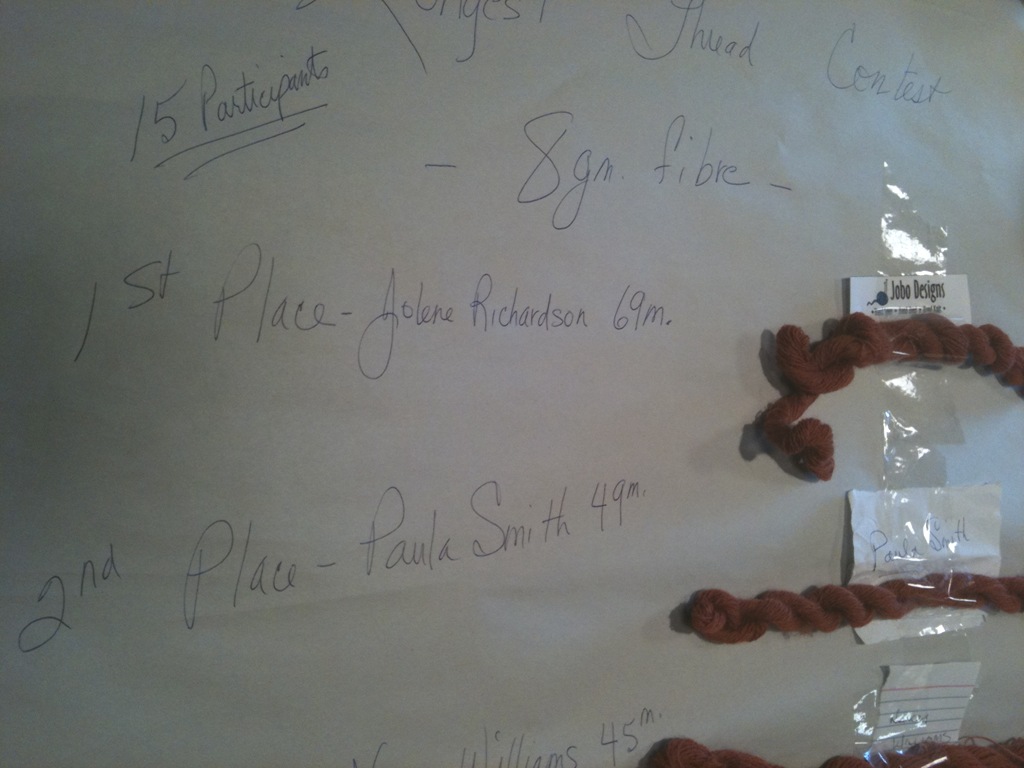 Thread Contest
15 Participants
- 8 gm. fibre -
1st Place - Jolene Richardson 69m.
Jobo Designs
2nd Place - Paula Smith 49m.
Paula Smith
Williams 45m.